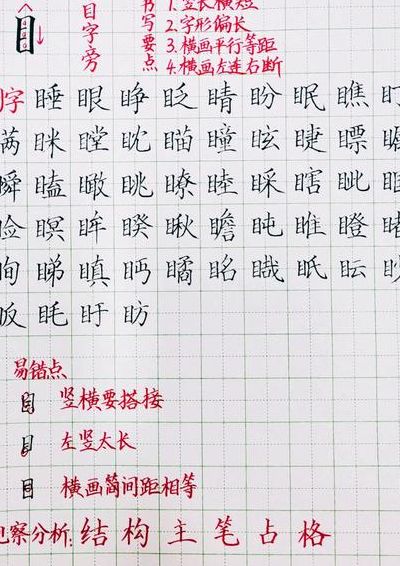 目字旁
书写要点
1.竖长横短
2.字形偏长
3.横画平行等距
4.横画左连右断
字 睡 眼 睁 眨 睛 盼 眠 瞧 盯
瞒 眯 瞠 眈 瞄 瞳 眩 睫 瞟
瞬 瞌 瞰 眺 瞭 睦 睬 瞎 眦
睑 瞑 眸 睽 瞅 瞻 盹 睢 瞪 睹
眴 睇 瞋 眄 瞲 眳 眓 眂 眃 眇
眅 眊 盱 眆
易错点
竖横要搭接
左竖太长
横画间间距相等
观察分析:结构主笔占格